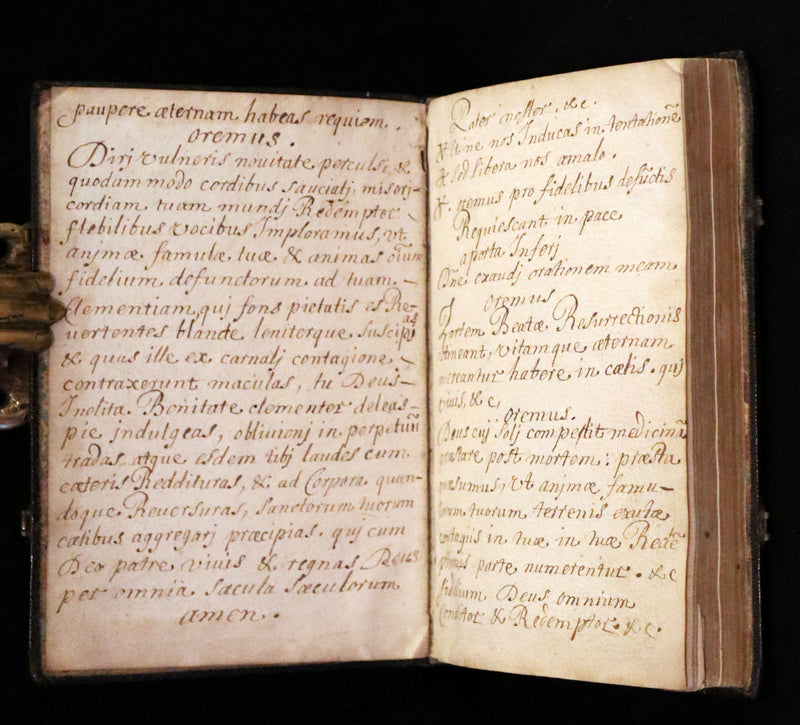 paupere æternam habeas requiem.
oremus.
Dirj vulneris nouitate perculsi, &
quodam modo cordibus sauciatj miseri-
cordiam tuam mundj Redemptor
flebilibus vocibus Imploramus, vt
animæ famulæ tuæ & animas oĩum
fidelium defunctorum ad tuam
Clementiam, quj fons pietatis es Re-
uertentes blande leniterque suscipias
& quas ille ex carnalj contagione
contraxerunt maculas, tu Deus
Inclita Bonitate clementer deleas
pie jndulgeas, oblivionj in perpetuũ
tradas atque esdem tibj laudes cum
cæteris Reddituras, & ad Corpora quan-
doque Reuersuras, sanctorum tuorum
cætibus aggregarj præcipias. quj cum
Deo patre viuis & regnas Deus
per omnia sæcula sæculorum
amen.
Pater noster, &c.
& ne nos Inducas in tentationẽ
& sed libera nos amalo.
oremus pro fidelibus defũctis
Requiescant in pace
aporta Inferj
Dñe exaudj orationem meam
oremus
Partem Beatæ Resurrectionis
obtineant, vitamque æternam
mereantur habere in cælis. quj
viuis, &c,
oremus.
Deus cuj solj competit medicinã
præstare post mortem: præsta
quæsumus, vt animæ famu-
lorum tuorum terrenis exutæ
contagiis in tuæ in tuæ Redẽ
ptionis parte numerentur. &c
fidelium Deus omnium
Conditor & Redemptor. &c.